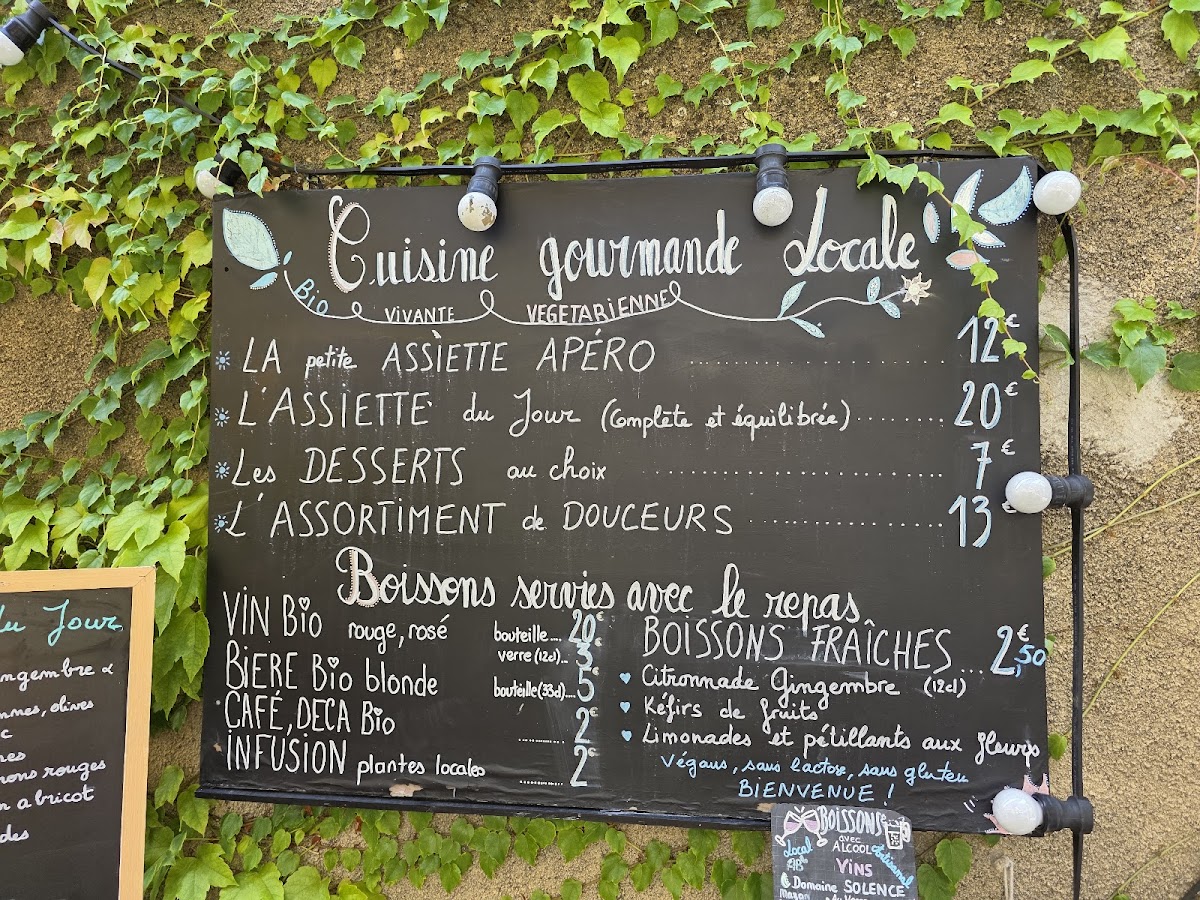 Cuisine gourmande Locale
Bio VIVANTE VEGETARIENNE
LA petite ASSIETTE APÉRO ........ 12€
L'ASSIETTE du Jour (complète et équilibrée) ........ 20€
Les DESSERTS au choix ........ 7€
L'ASSORTIMENT de DOUCEURS ........ 13
Boissons servies avec le repas
VIN BiO rouge, rosé bouteille.... 20€
verre (12cl)..
BiERE Bio blonde bouteille(33cl).... 5€
CAFÉ, DECA BiO ........ 2€
INFUSION plantes locales ........ 2€
BOISSONS FRAÎCHES ... 2,€50
Citronnade Gingembre (12cl)
Kéfirs de fruits
Limonades et pétillants aux fleurs
végans, sans lactose, sans gluten
BIENVENUE !
du Jour
ingembre
olives
rouges
abricot
BOISSONS
avec
ALCOOL
Local
Artisanal
VINS
Domaine SOLENCE
Mazan